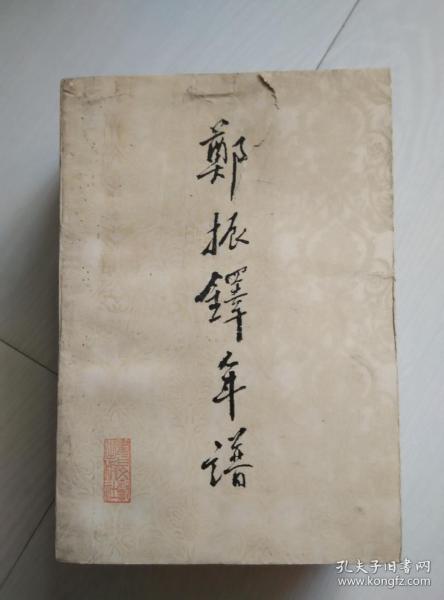 鄭振鐸年譜
孔夫子旧书网
www.kongfz.com